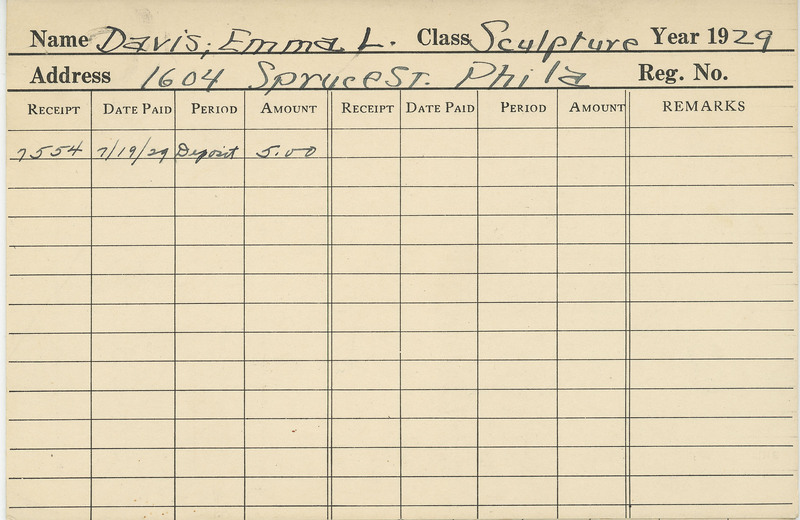 Name Davis, Emma L. Class Sculpture Year 1929
Address 1604 Spruce St. Phila Reg. No.
RECEIPT DATE PAID PERIOD AMOUNT RECEIPT DATE PAID PERIOD AMOUNT REMARKS
7554 7/19/29 Deposit 5.00